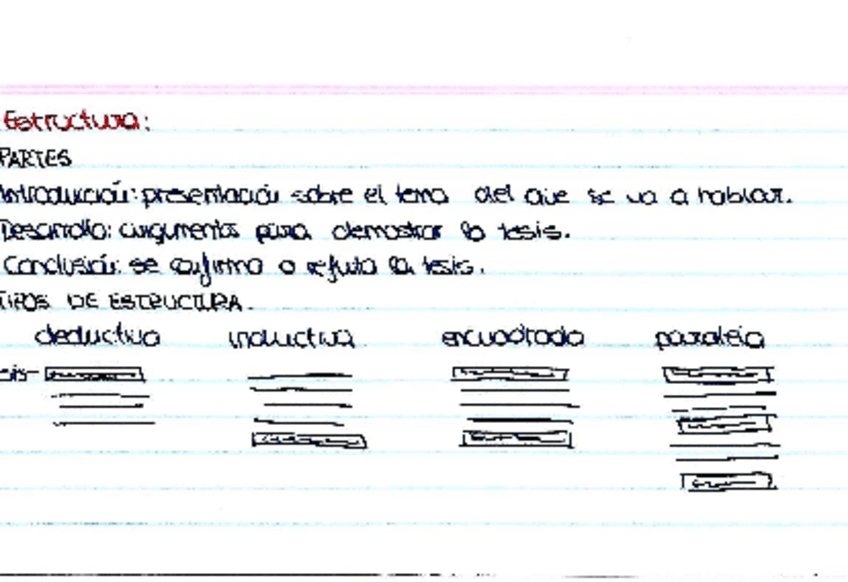 Estructura:
PARTES
Introducción: presentación sobre el tema del que se va a hablar.
Desarrollo: argumentos para demostrar la tesis.
Conclusión: se confirma o refuta la tesis.
TIPOS DE ESTRUCTURA.
deductiva inductiva encuadrada paralela